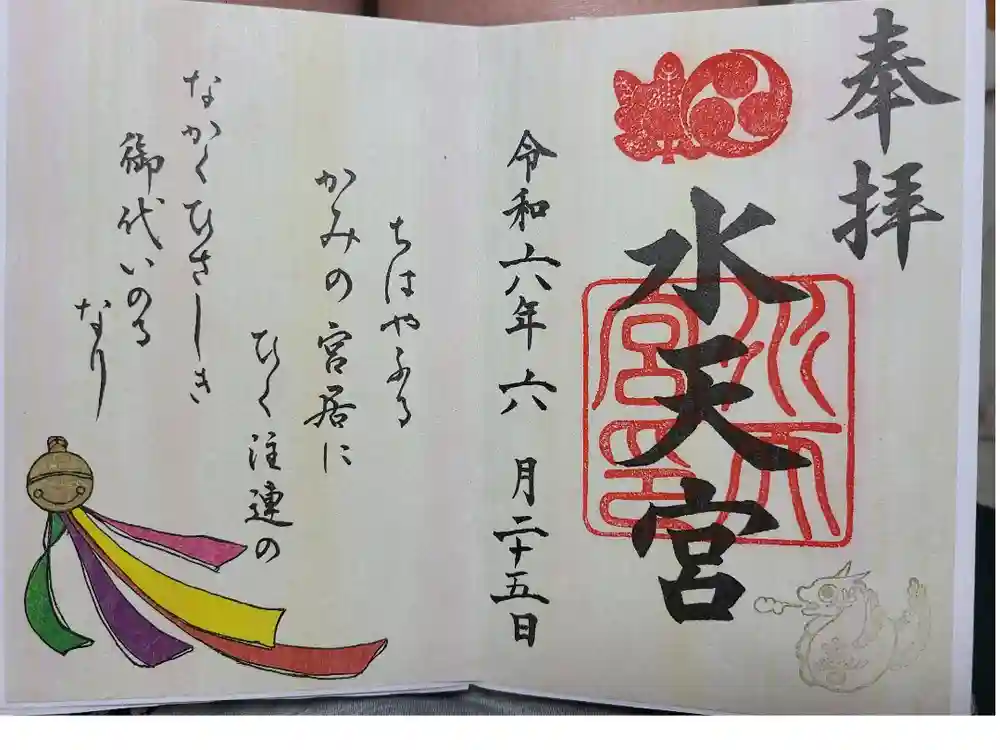 奉拝
水天宮
令和六年六月二十五日
ちはやふる
かみの宮居に
ひく注連の
なかくひさしき
御代いのる
なり